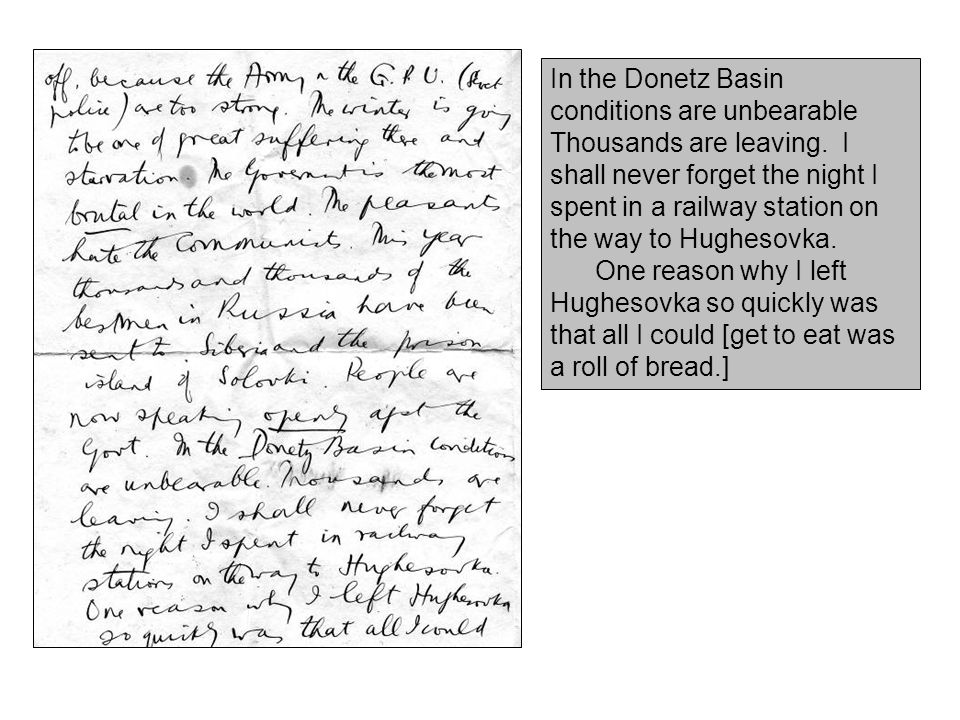 off, because the Army & the G.P.U. (Secret
police) are too strong. The winter is going
to be one of great suffering there and
starvation. The Government is the most
brutal in the world. The peasants
hate the Communists. This year
thousands and thousands of the
best men in Russia have been
sent to Siberia and the prison
island of Solovki. People are
now speaking openly agst the
Govt. In the Donetz Basin conditions
are unbearable. Thousands are
leaving. I shall never forget
the night I spent in railway
stations on the way to Hughesovka.
One reason why I left Hughesovka
so quickly was that all I could
In the Donetz Basin
conditions are unbearable
Thousands are leaving. I
shall never forget the night I
spent in a railway station on
the way to Hughesovka.
One reason why I left
Hughesovka so quickly was
that all I could [get to eat was
a roll of bread.]